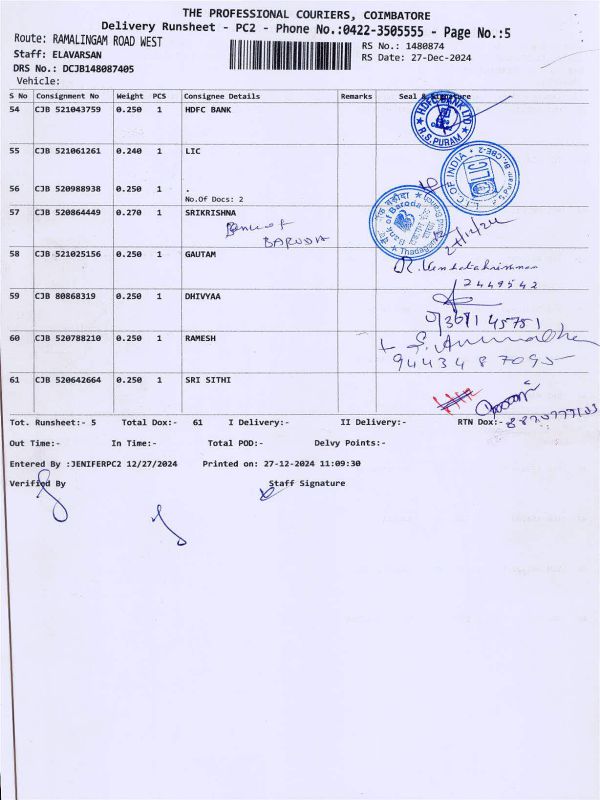 THE PROFESSIONAL COURIERS, COIMBATORE
Delivery Runsheet - PC2 - Phone No.:0422-3505555 - Page No.:5
Route: RAMALINGAM ROAD WEST
RS No.: 1480874
Staff: ELAVARSAN
RS Date: 27-Dec-2024
DRS No.: DCJB148087405
Vehicle:
S No Consignment No Weight PCS Consignee Details Remarks Seal & Signature
54 CJB 521043759 0.250 1 HDFC BANK
HDFC BANK LTD
R.S.PURAM
55 CJB 521061261 0.240 1 LIC
L I C OF INDIA
LIC
56 CJB 520988938 0.250 1 .
No.Of Docs: 2
57 CJB 520864449 0.270 1 SRIKRISHNA
Bank of
BARODA
Bank of Baroda
27/12/24
58 CJB 521025156 0.250 1 GAUTAM
R. Venkatakrishnan
2449542
59 CJB 80868319 0.250 1 DHIVYAA
60 CJB 520788210 0.250 1 RAMESH
61 CJB 520642664 0.250 1 SRI SITHI
Tot. Runsheet:- 5 Total Dox:- 61 I Delivery:- II Delivery:- RTN Dox:-
Out Time:- In Time:- Total POD:- Delvy Points:-
Entered By :JENIFERPC2 12/27/2024 Printed on: 27-12-2024 11:09:30
Verified By Staff Signature